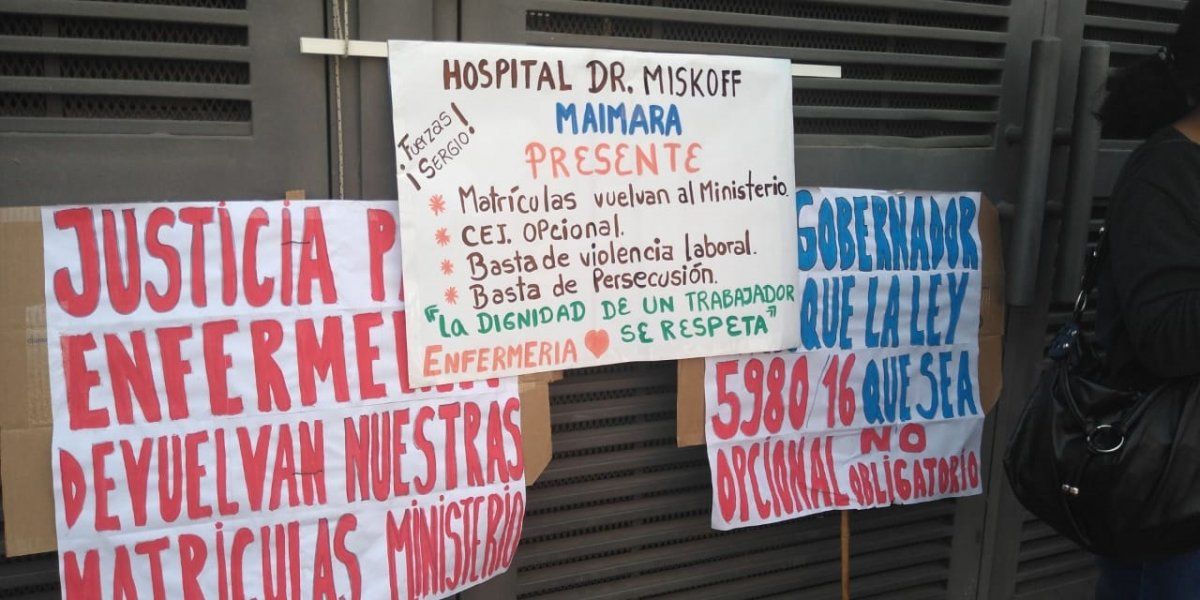 HOSPITAL DR. MISKOFF
MAIMARA
PRESENTE
¡Fuerzas
SERGIO!
* Matrículas vuelvan al Ministerio.
* CEJ. OPcional.
* Basta de violencia laboral.
* Basta de Persecusión.
"LA DIGNIDAD DE UN TRABAJADOR
SE RESPETA"
ENFERMERIA
JUSTICIA P
ENFERME
DEVUELVAN NUESTRAS
MATRICULAS MINISTERIO
GOBERNADOR
QUE LA LEY
5980/16 QUE SEA
OPCIONAL NO
OBLIGATORIO